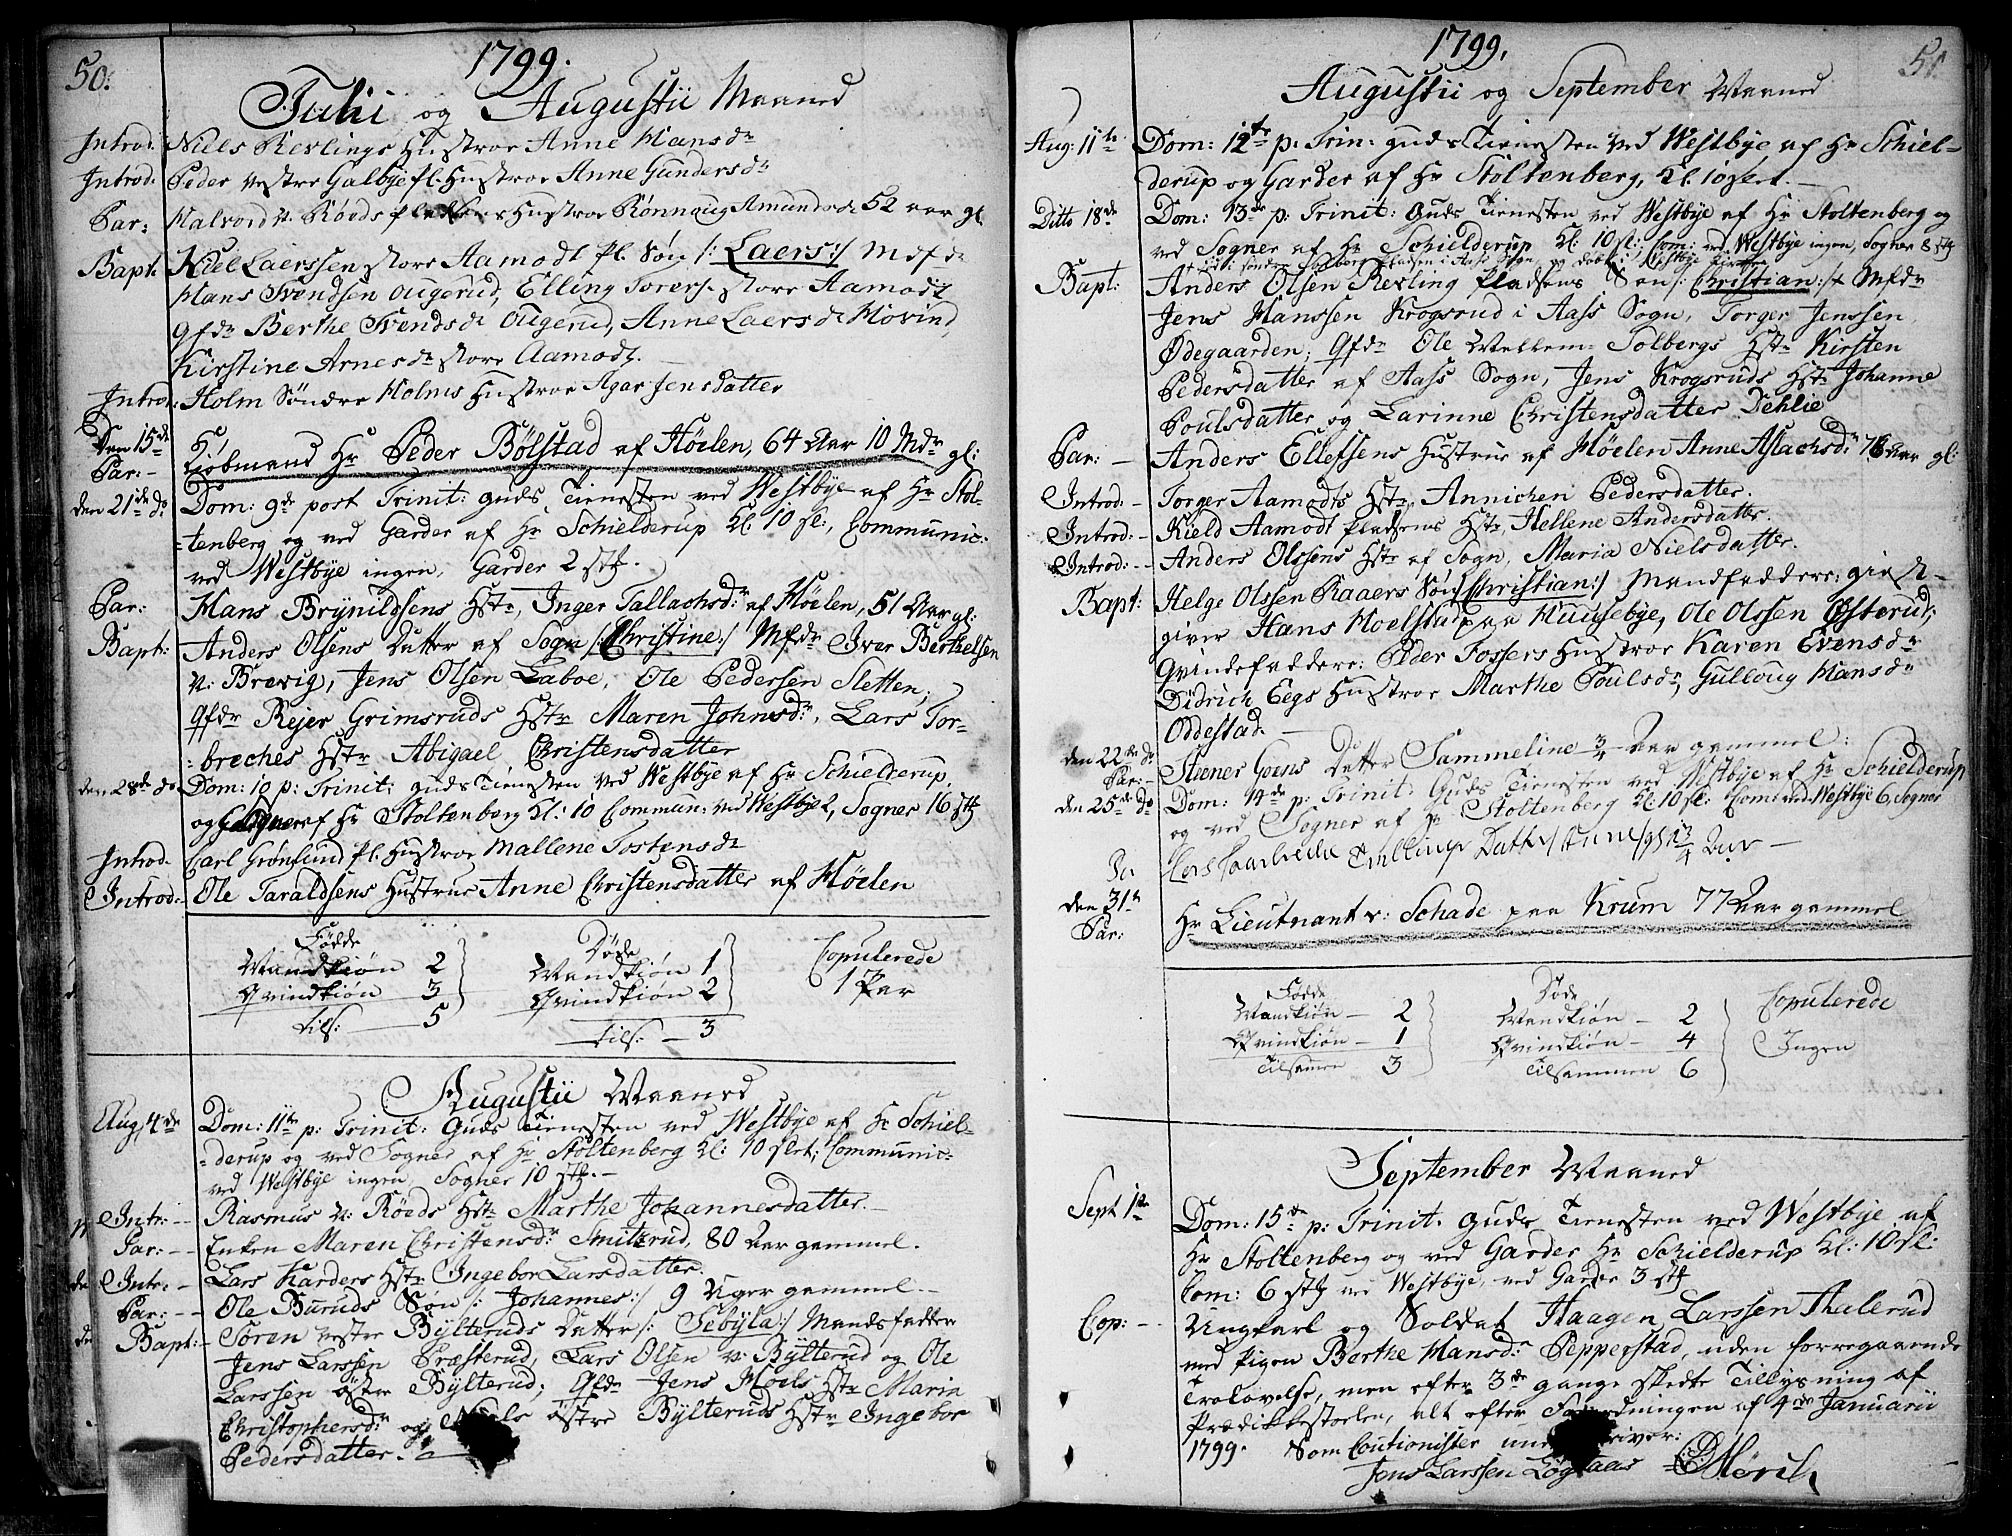 50.
1799.
Julii og Augustii Maaned
Introd. Niels Revlings Hustroe Anne Hansdr
Introd. Peder vestre Galbye pl. Hustroe Anne Gundersdr
Par: Halvord v: Røeds Hustroe Rønnaug Amunds dr 52 aar gl
Bapt. Kiel Laerssen store Aamodt pl. Søn /: Laers :/ Mfdr
Hans Svendsen Ougerud, Elling Torers. store Aamodt
Qfdr Berthe Svends dr Ougerud, Anne Laers dr Hovind
Kirstine Arnes dr store Aamodt.
Introd: Holm Søndre Holms Hustroe Agar Jensdatter
Den 15de
Par: - Kiøbmand Hr Peder Bølstad af Høelen, 64 Aar 10 Mdr gl:
den 21de do Dom: 9de post Trinit: Guds Tienesten ved Westbye af Hr Stol-
=tenberg og ved Garder af Hr Schielderup Kl. 10 sl:, Communic:
ved Westbye ingen, Garder 2 stk.
Par: Hans Brynildsens Hstr, Inger Tallachsdr af Høelen, 51 Aar gl:
Bapt: Anders Olsens Datter af Sogn /: Christine :/ Mfdr Iver Berthelsen
v: Brevig, Jens Olsen Laboe, Ole Pedersen Sletten;
Qfdr Rejer Grimsruds Hstr Maren Johnsdr, Lars Tor-
=breches Hstr Abigael Christensdatter
den 28de do Dom: 10 p: Trinit: guds Tienesten ved Westbye af Hr Schielderup
og af Hr Stoltenberg Kl: 10 Commun: ved Westbye 2, Sogner 16 stk
Introd. Carl Grønlund pl. Hustroe Mallene Tostensdr
Introd: Ole Taraldsens Hustrue Anne Christensdatter af Høelen
Fødde Døde Copulerede
Mandkiøn 2 Mandkiøn 1 1 Par
Qvindkiøn 3 Qvindkiøn 2
tils: 5 tils: 3
Augustii Maaned
Aug. 4de Dom: 11te p: Trinit: Guds Tienesten ved Westbye af Hr Schiel-
=derup og ved Sogner af Hr Stoltenberg Kl: 10 slet; Communic:
ved Westbye ingen, Sogner 10 stk. -
Intr: - Rasmus v: Røeds Hstr Marthe Johannesdatter. -
Par: - Enken Maren Christensdr Smitsrud, 80 Aar gammel.
Intr: - Lars Karders Hstr Ingebor Larsdatter.
Par: - Ole Buruds Søn /: Johannes :/ 9 Uger gammel. -
Bapt: - Søren vestre Bylteruds Datter /: Sebyla :/ Mandsfadder
Jens Larssen Præsterud, Lars Olsen v: Bylterud og Ole
Larssen østre Bylterud; Qfdr Jens Hoels Hstr Maria
Christophersdr og Niels østre Bylteruds Hstr Ingebor
Pedersdatter.
51.
1799.
Augustii og September Maaned
Aug: 11te Dom: 12te p: Trin: guds Tienesten ved Westbye af Hr Schiel-
derup og Garder af Hr Stoltenberg, Kl: 10 slet. -
Ditto 18de Dom: 13de p: Trinit: Guds Tienesten ved Westbye af Hr Stoltenberg og
ved Sogner af Hr Schielderup Kl: 10 sl: Com: ved Westbye ingen, Sogner 8 stk
Bapt: Anders Olsen Revling Pladsens Søn /: Christian :/ Mfdr
Jens Hanssen Krogsrud i Aass Sogn, Torger Jenssen
Ødegaarden; Qfdr Ole Wellem: Solbergs Hstr Kirsten
Pedersdatter af Aass Sogn, Jens Krogsruds Hstr Johanne
Poulsdatter og Larinne Christensdatter Dehlie
Par: - Anders Ellefsens Hustrue af Høelen Anne Aslachsdr 76 Aar gl:
Introd: - Torger Aamodts Hstr Annichen Pedersdatter.
Introd: - Kield Aamodt Pladsens Hstr, Hellene Andersdatter.
Introd: - Anders Olssens Hstr af Sogn, Maria Nielsdatter.
Bapt: Helge Olssen Raaers Søn /: Christian :/ Mandfaddere: giest-
giver Hans Hoelstad paa Huusebye, Ole Olssen Østerud;
Qvindefaddere: Peder Fossers Hustroe Karen Evensdr
Didrich Eegs Hustroe Marthe Poulsdr, Gulloug Hansdr
Oddestad. -
den 22de do
Par: - Steener Goens Datter Sammeline 3/4 Aar gammel:
den 25de do Dom: 14de p: Trinit: Guds Tienesten ved Westbye af Hr Schielderup
og ved Sogner af Hr Stoltenberg Kl: 10 sl: Com: ved Westbye 6, Sogner
den 31te
Par: Hr Lieutnant v: Schade paa Krum 77 Aar gammel
Fødde Døde Copulerede
Mandkiøn - 2 Mandkiøn - 2 Ingen
Qvindkiøn - 1 Qvindkiøn - 4
Tilsamen 3 Tilsammen 6
September Maaned
Sept 1te Dom: 15de p: Trinit. Guds Tienesten ved Westbye af
Hr Stoltenberg og ved Garder Hr Schielderup Kl: 10 sl:
Com: 6 stk ved Westbye, ved Garder 3 stk
Cop: - Ungkarl og Soldat Haagen Larssen Thulerud
med Pigen Berthe Hansdr Pepperstad, uden forregaaende
Trolovelse, men efter 3de gange skedte Tillysning af
Prædikkestoelen, alt efter Forordningen af 4de Januarii
1799. Som Coutionister underskriver:
Jens Larssen